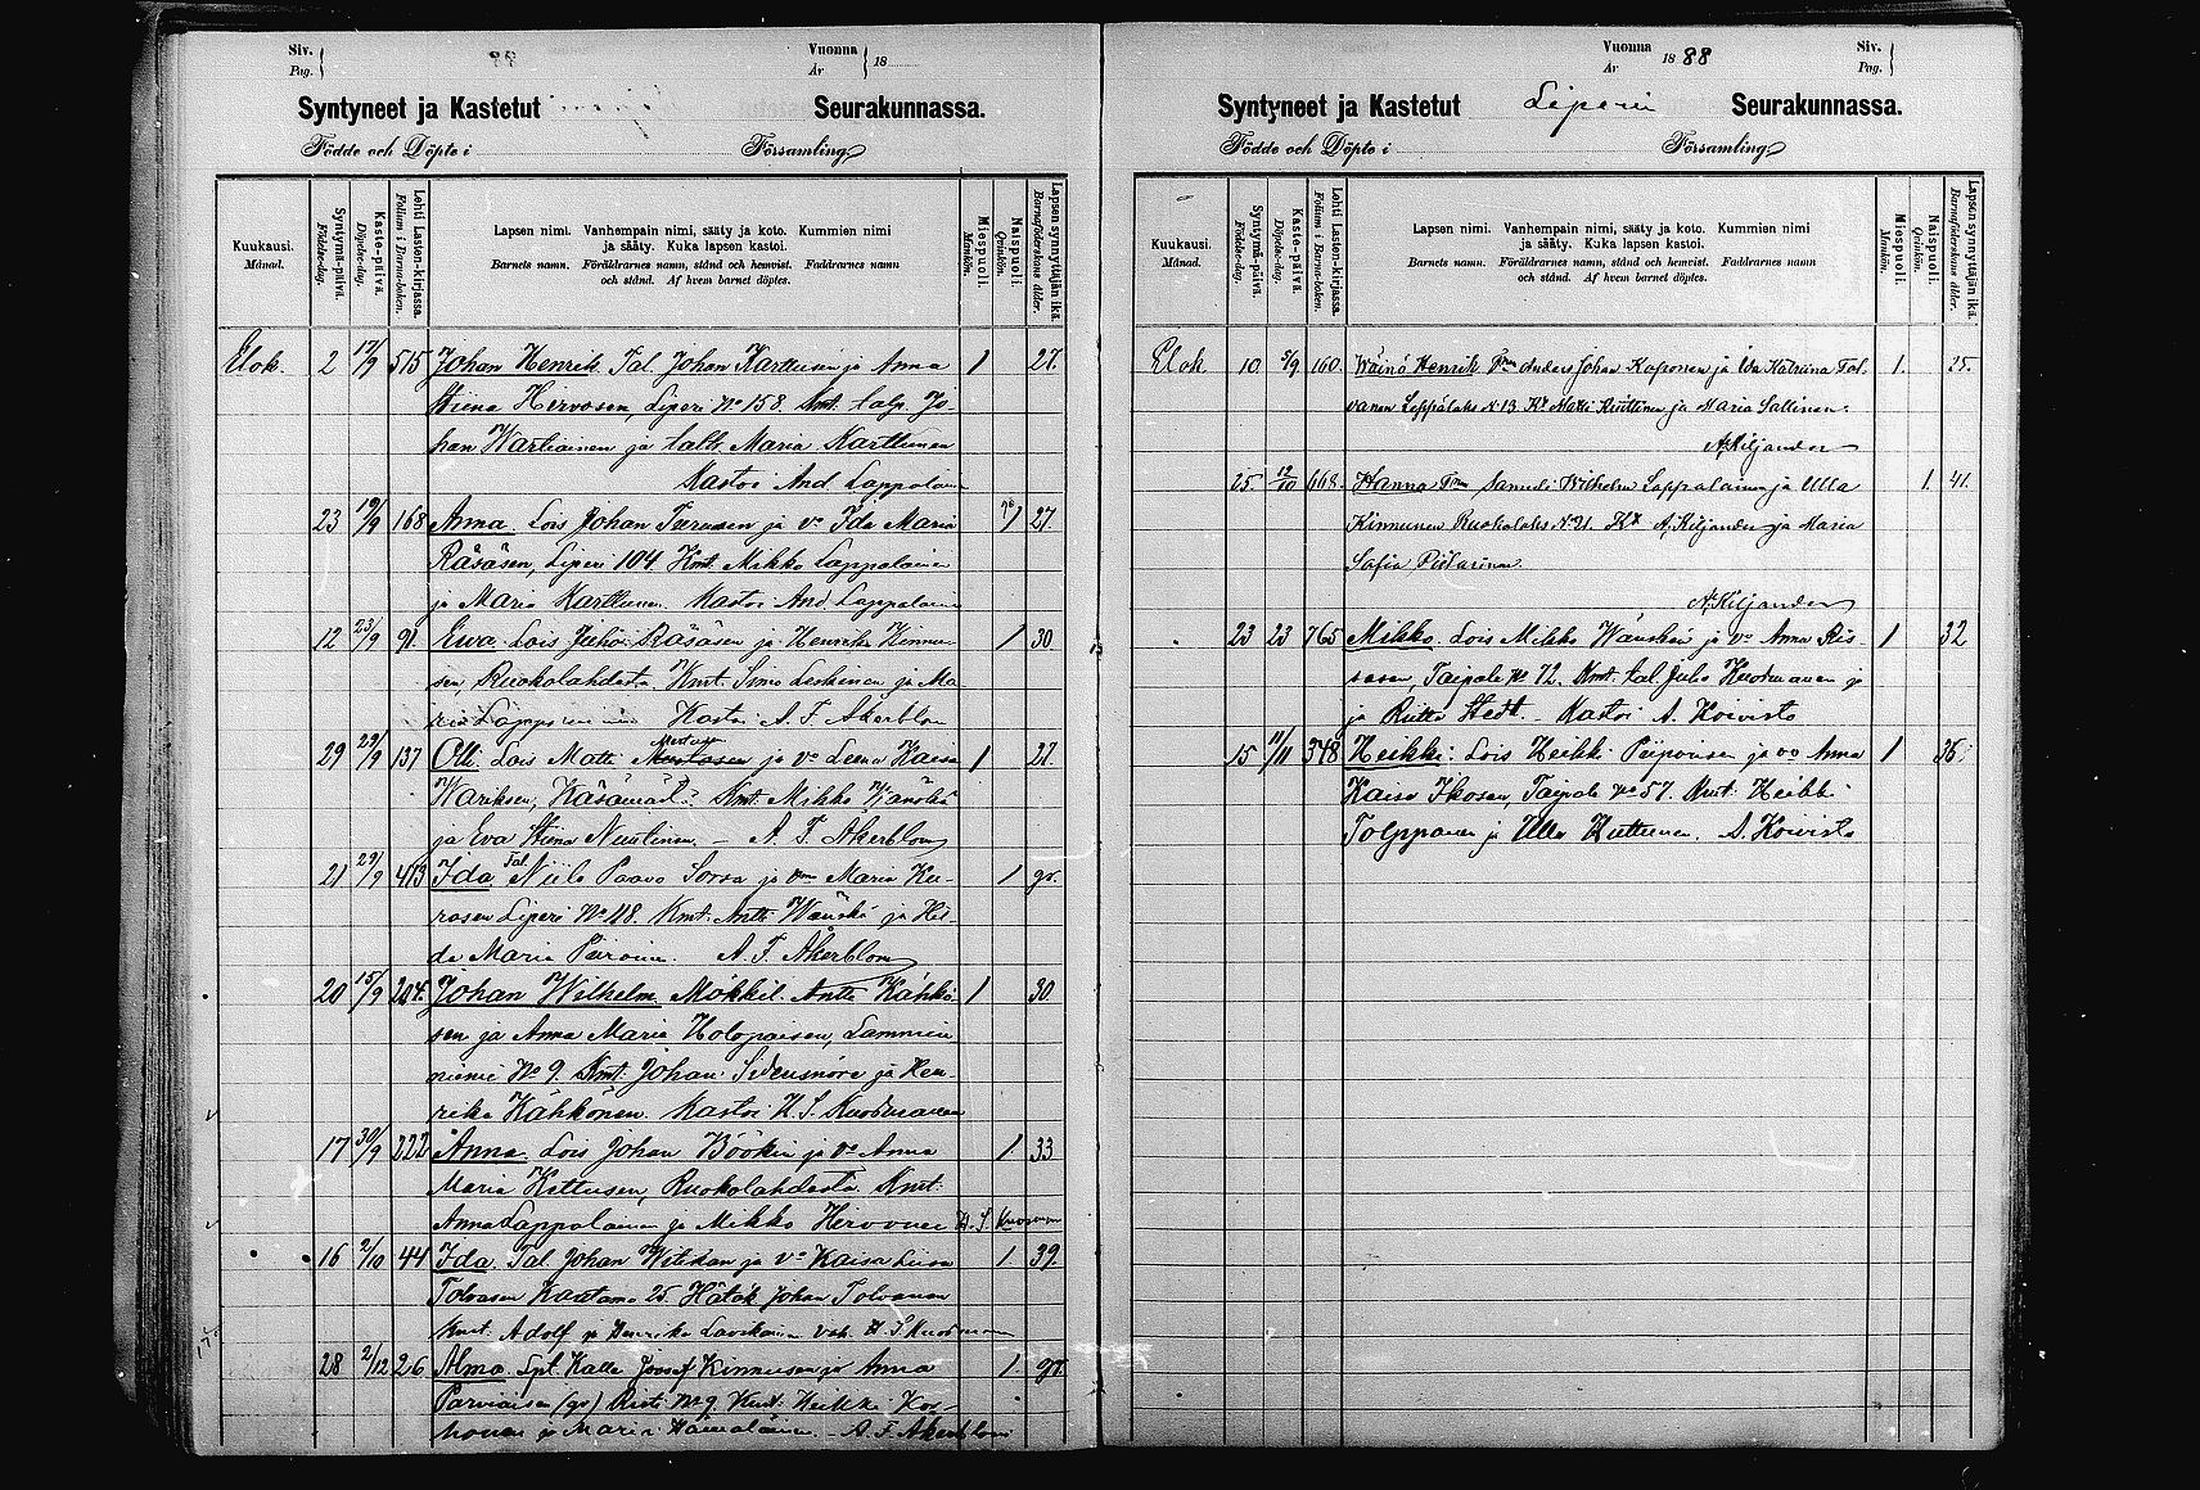 Siv.
Pag.
Vuonna
År
18
Syntyneet ja Kastetut Seurakunnassa.
Födde och Döpte i Församling
Kuukausi.
Månad.
Syntymä-päivä.
Födelse-dag.
Kaste-päivä.
Döpelse-dag.
Lehti Lasten-kirjassa.
Folium i Barna-boken.
Lapsen nimi. Vanhempain nimi, sääty ja koto. Kummien nimi
ja sääty. Kuka lapsen kastoi.
Barnets namn. Föräldrarnes namn, stånd och hemvist. Faddrarnes namn
och stånd. Af hvem barnet döptes.
Miespuoli.
Mankön.
Naispuoli.
Qvinkön.
Lapsen synnyttäjän ikä.
Barnaföderskans ålder.
Elok. 2 17/9 515 Johan Henrik. Tal. Johan Karttusen ja Anna 1 27.
Stiina Hirvosen, Liperi No 158. Kmt. talp. Jo-
han Wartiainen ja taltr. Maria Karttunen
Kastoi And. Lappalainen
23 19/9 168 Anna. Lois Johan Turusen ja vo Ida Maria 1 27.
Räsäsen, Liperi 104. Kmt. Mikko Lappalainen
ja Maria Karttunen. Kastoi And. Lappalainen
12 23/9 91. Ewa. Lois Juho Räsäsen ja Henrika Kinnu- 1 30.
sen, Ruokolahdesta. Kmt. Simo Leskinen ja Ma-
ria Kastoi A. F. Åkerblom
29 29/9 137 Olli. Lois Matti Mustosen ja vo Leena Kaisa 1 27.
Wariksen, Käsämästä. Kmt. Mikko Wänskä
ja Eva Stiina Nuutinen. – A. F. Åkerblom
21 29/9 413 Ida. Tal. Niilo Paavo Sorsa ja vmo Maria Ku- 1 gr.
rosen Liperi No 118. Kmt. Antti Wänskä ja Hil-
da Maria Piiroinen. A. F. Åkerblom
20 15/9 204. Johan Wilhelm. Mökkil. Antti Kähkö- 1 30.
sen ja Anna Maria Holopaisen, Lammin-
niemi No 9. Kmt. Johan Sidensnöre ja Hen-
rika Kähkönen. Kastoi H. S. Kuosmanen
17 30/9 222 Anna. Lois Johan Böökin ja vo Anna 1 33
Maria Kettusen, Ruokolahdesta. Kmt.
Anna Lappalainen ja Mikko Hirvonen H. S. Kuosmanen
16 2/10 44 Ida. Tal. Johan ja vo Kaisa Liisa 1. 39.
Tolvasen Kaatamo 25. Hätäk. Johan Tolvanen
Kmt. Adolf ja Henrika Lavikainen vah. H. S. Kuosmanen
28 2/12 26 Alma. Spt. Kalle Joosef Kinnusen ja Anna 1. gr.
Parviaisen (gr) Risti No 9. Kmt. Heikki Kor-
honen ja Maria Hämäläinen. – A. F. Åkerblom
Vuonna
År
1888
Siv.
Pag.
Syntyneet ja Kastetut Liperin Seurakunnassa.
Födde och Döpte i Församling
Kuukausi.
Månad.
Syntymä-päivä.
Födelse-dag.
Kaste-päivä.
Döpelse-dag.
Lehti Lasten-kirjassa.
Folium i Barna-boken.
Lapsen nimi. Vanhempain nimi, sääty ja koto. Kummien nimi
ja sääty. Kuka lapsen kastoi.
Barnets namn. Föräldrarnes namn, stånd och hemvist. Faddrarnes namn
och stånd. Af hvem barnet döptes.
Miespuoli.
Mankön.
Naispuoli.
Qvinkön.
Lapsen synnyttäjän ikä.
Barnaföderskans ålder.
Elok. 10. 5/9 160. Wäinö Henrik Anders Johan Kaponen ja Ida Katriina Tol- 1. 25.
vanen Leppälaks N:o 13 Kt Matti Riittinen ja Maria Sallinen.
A. Kiljander
25. 12/10 668. Hanna Samuli Wilhelm Lappalainen ja Ulla 1. 41.
Kinnunen Ruokolaks No 21. Kt A. Kiljander ja Maria
Sofia
A. Kiljander
23 23 765 Mikko. Lois Mikko Wänskän ja vo Anna Ris- 1 32
sasen, Taipale No 72. Kmt. tal. Juho Kuosmanen ja
ja Riitta Stedt. – Kastoi A. Koivisto
15 11/11 348 Heikki. Lois Heikki Piiposen ja vo Anna 1 36.
Kaisa Ikosen, Taipale No 57. Kmt. Heikki
Tolppanen ja Ulla Huttunen. A. Koivisto